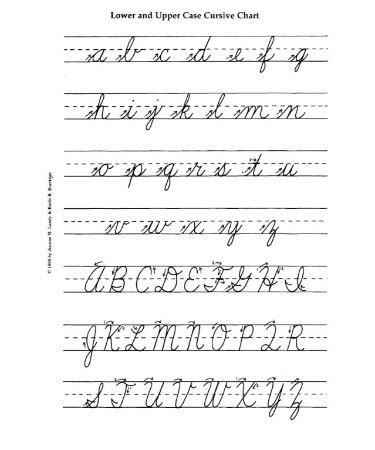 Lower and Upper Case Cursive Chart
a b c d e f g
h i j k l m n
o p q r s t u
v w x y z
A B C D E F G H I
J K L M N O P Q R
S T U V W X Y Z
© 1998 by Jeanne M. Landy & Keith R. Burridge